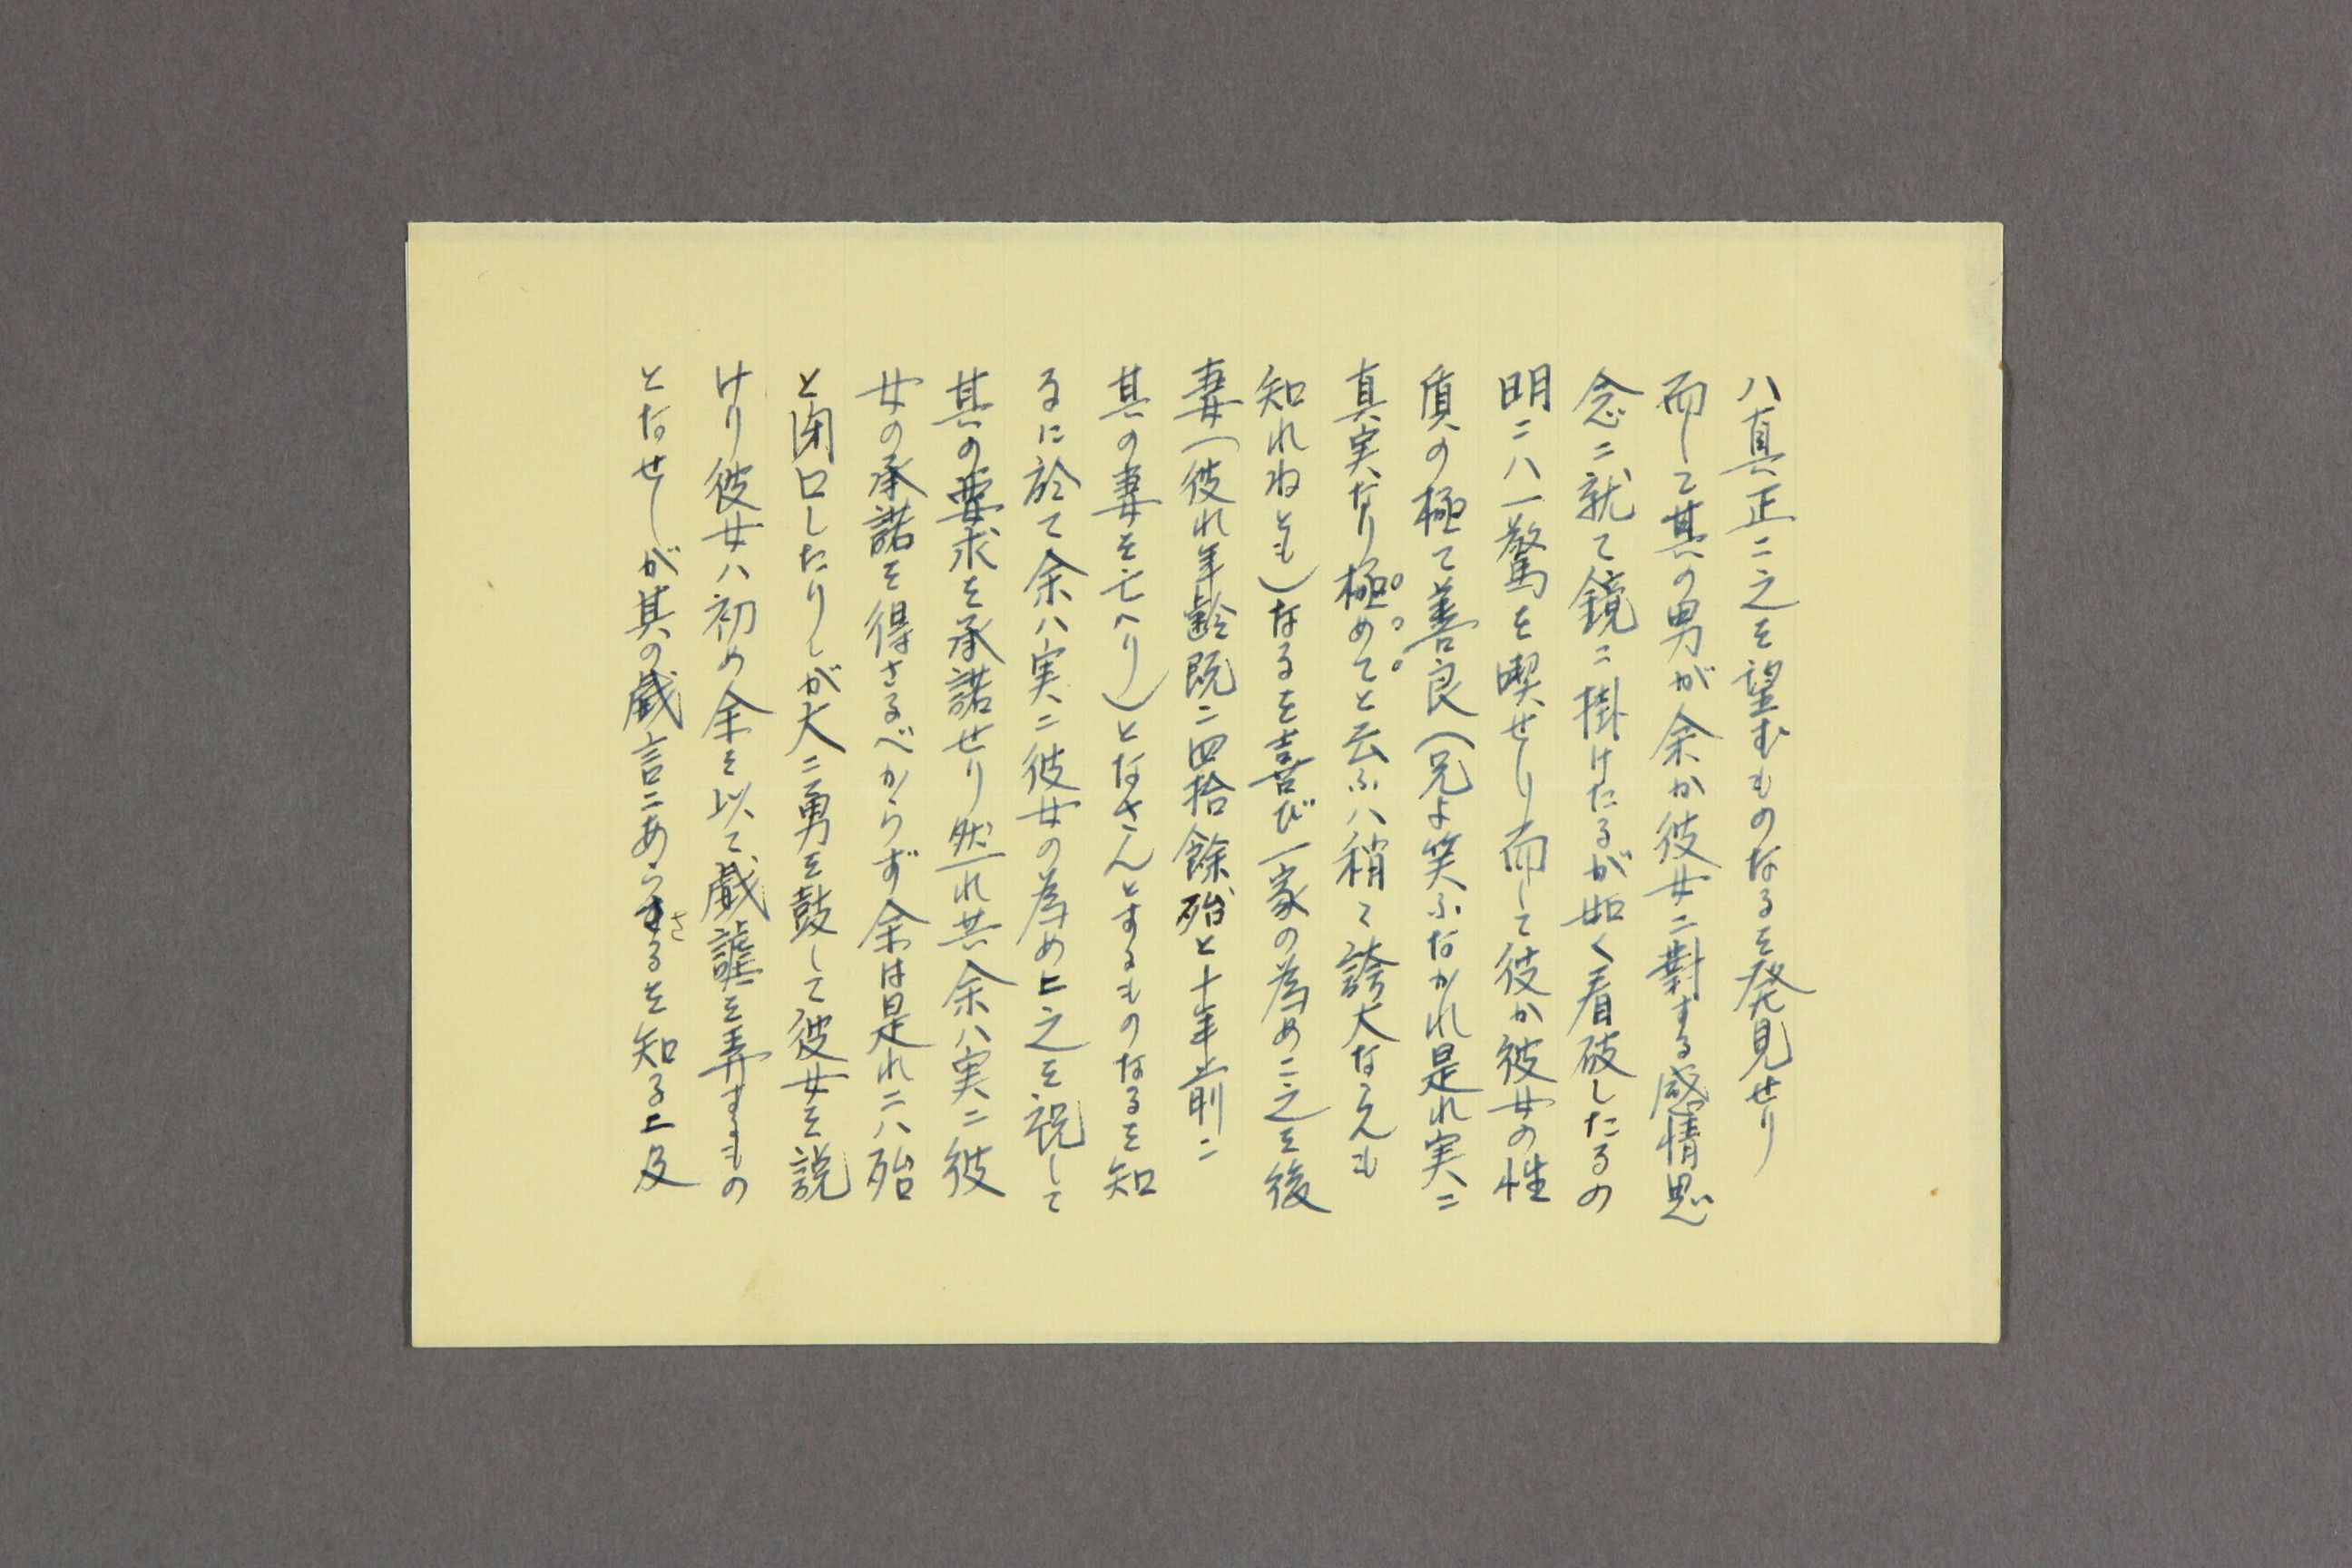 ハ真正ニ之を望むものなるを発見せり
而して其の男が余か彼女ニ對する感情思
念ニ就て鏡ニ掛けたるが如く看破したるの
明ニハ一驚を喫せり而して彼か彼女の性
質の極て善良（兄よ笑ふなかれ是れ実ニ
真実なり極めてと云ふハ稍々誇大ならんも
知れねとも）なるを喜び一家の為めニ之を後
妻（彼れ年齢既ニ四拾餘殆と十年前ニ
其の妻を亡へり）となさんとするものなるを知
るに於て余ハ実ニ彼女の為めニ之を祝して
其の要求を承諾せり然れ共余ハ実ニ彼
女の承諾を得さるべからず余は是れニハ殆
と閉口したりしが大ニ勇を鼓して彼女を説
けり彼女ハ初め余を以て戯謔を弄するもの
となせしが其の戯言ニあらさるを知るニ及